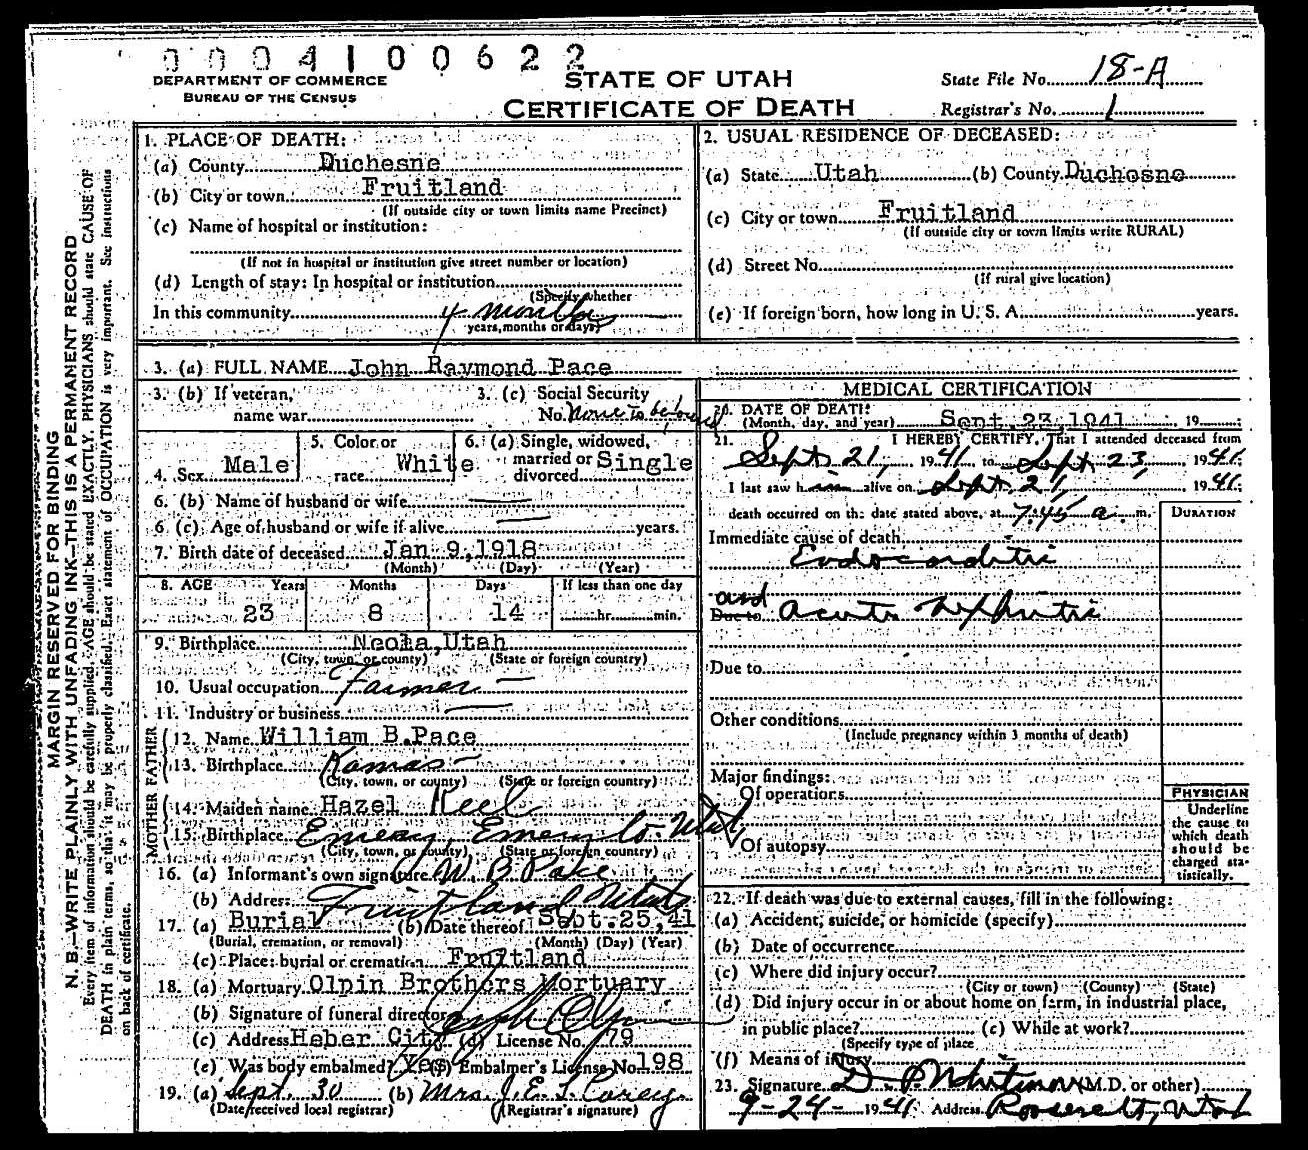 0004100622
DEPARTMENT OF COMMERCE
BUREAU OF THE CENSUS
STATE OF UTAH
CERTIFICATE OF DEATH
State File No. 18-A
Registrar's No. 1
MARGIN RESERVED FOR BINDING
N. B.—WRITE PLAINLY WITH UNFADING INK—THIS IS A PERMANENT RECORD
Every item of information should be carefully supplied. AGE should be stated EXACTLY. PHYSICIANS should state CAUSE OF
DEATH in plain terms, so that it may be properly classified. Exact statement of OCCUPATION is very important. See instructions
on back of certificate.
1. PLACE OF DEATH:
(a) County Duchesne
(b) City or town Fruitland
(If outside city or town limits name Precinct)
(c) Name of hospital or institution:
(If not in hospital or institution give street number or location)
(d) Length of stay: In hospital or institution
(Specify whether
In this community 4 months
years, months or days)
2. USUAL RESIDENCE OF DECEASED:
(a) State Utah (b) County Duchesne
(c) City or town Fruitland
(If outside city or town limits write RURAL)
(d) Street No.
(If rural give location)
(e) If foreign born, how long in U. S. A. years.
3. (a) FULL NAME John Raymond Pace
3. (b) If veteran, name war
3. (c) Social Security No. None to be found
4. Sex Male
5. Color or race White
6. (a) Single, widowed, married or divorced Single
6. (b) Name of husband or wife
6. (c) Age of husband or wife if alive years.
7. Birth date of deceased Jan 9, 1918
(Month) (Day) (Year)
8. AGE Years Months Days If less than one day
23 8 14 hr. min.
9. Birthplace Neola, Utah
(City, town, or county) (State or foreign country)
10. Usual occupation Farmer
11. Industry or business
FATHER
12. Name William B. Pace
13. Birthplace Kamas
(City, town, or county) (State or foreign country)
MOTHER
14. Maiden name Hazel Keel
15. Birthplace Emery, Emery Co-Utah
(City, town, or county) (State or foreign country)
16. (a) Informant's own signature W. B. Pace
(b) Address Fruitland Utah
17. (a) Burial (b) Date thereof Sept. 25, 41
(Burial, cremation, or removal) (Month) (Day) (Year)
(c) Place: burial or cremation Fruitland
18. (a) Mortuary Olpin Brothers Mortuary
(b) Signature of funeral director Olpin
(c) Address Heber City (d) License No. 79
(e) Was body embalmed? Yes (f) Embalmer's License No. 198
19. (a) Sept. 30 (b) Mrs. J. E. L. Carey
(Date received local registrar) (Registrar's signature)
MEDICAL CERTIFICATION
20. DATE OF DEATH:
(Month, day, and year) Sept. 23, 1941, 19
21. I HEREBY CERTIFY, That I attended deceased from
Sept. 21, 1941 to Sept 23, 1941
I last saw him alive on Sept. 21, 1941
death occurred on the date stated above, at 7:45 a. m.
DURATION
Immediate cause of death
Endocarditis
and
Due to Acute Nephritis
Due to
Other conditions
(Include pregnancy within 3 months of death)
Major findings:
Of operations
Of autopsy
PHYSICIAN
Underline
the cause to
which death
should be
charged sta-
tistically.
22. If death was due to external causes, fill in the following:
(a) Accident, suicide, or homicide (specify)
(b) Date of occurrence
(c) Where did injury occur?
(City or town) (County) (State)
(d) Did injury occur in or about home on farm, in industrial place,
in public place? (e) While at work?
(Specify type of place
(f) Means of injury
23. Signature (M.D. or other)
9-24-1941 Address Roosevelt, Utah